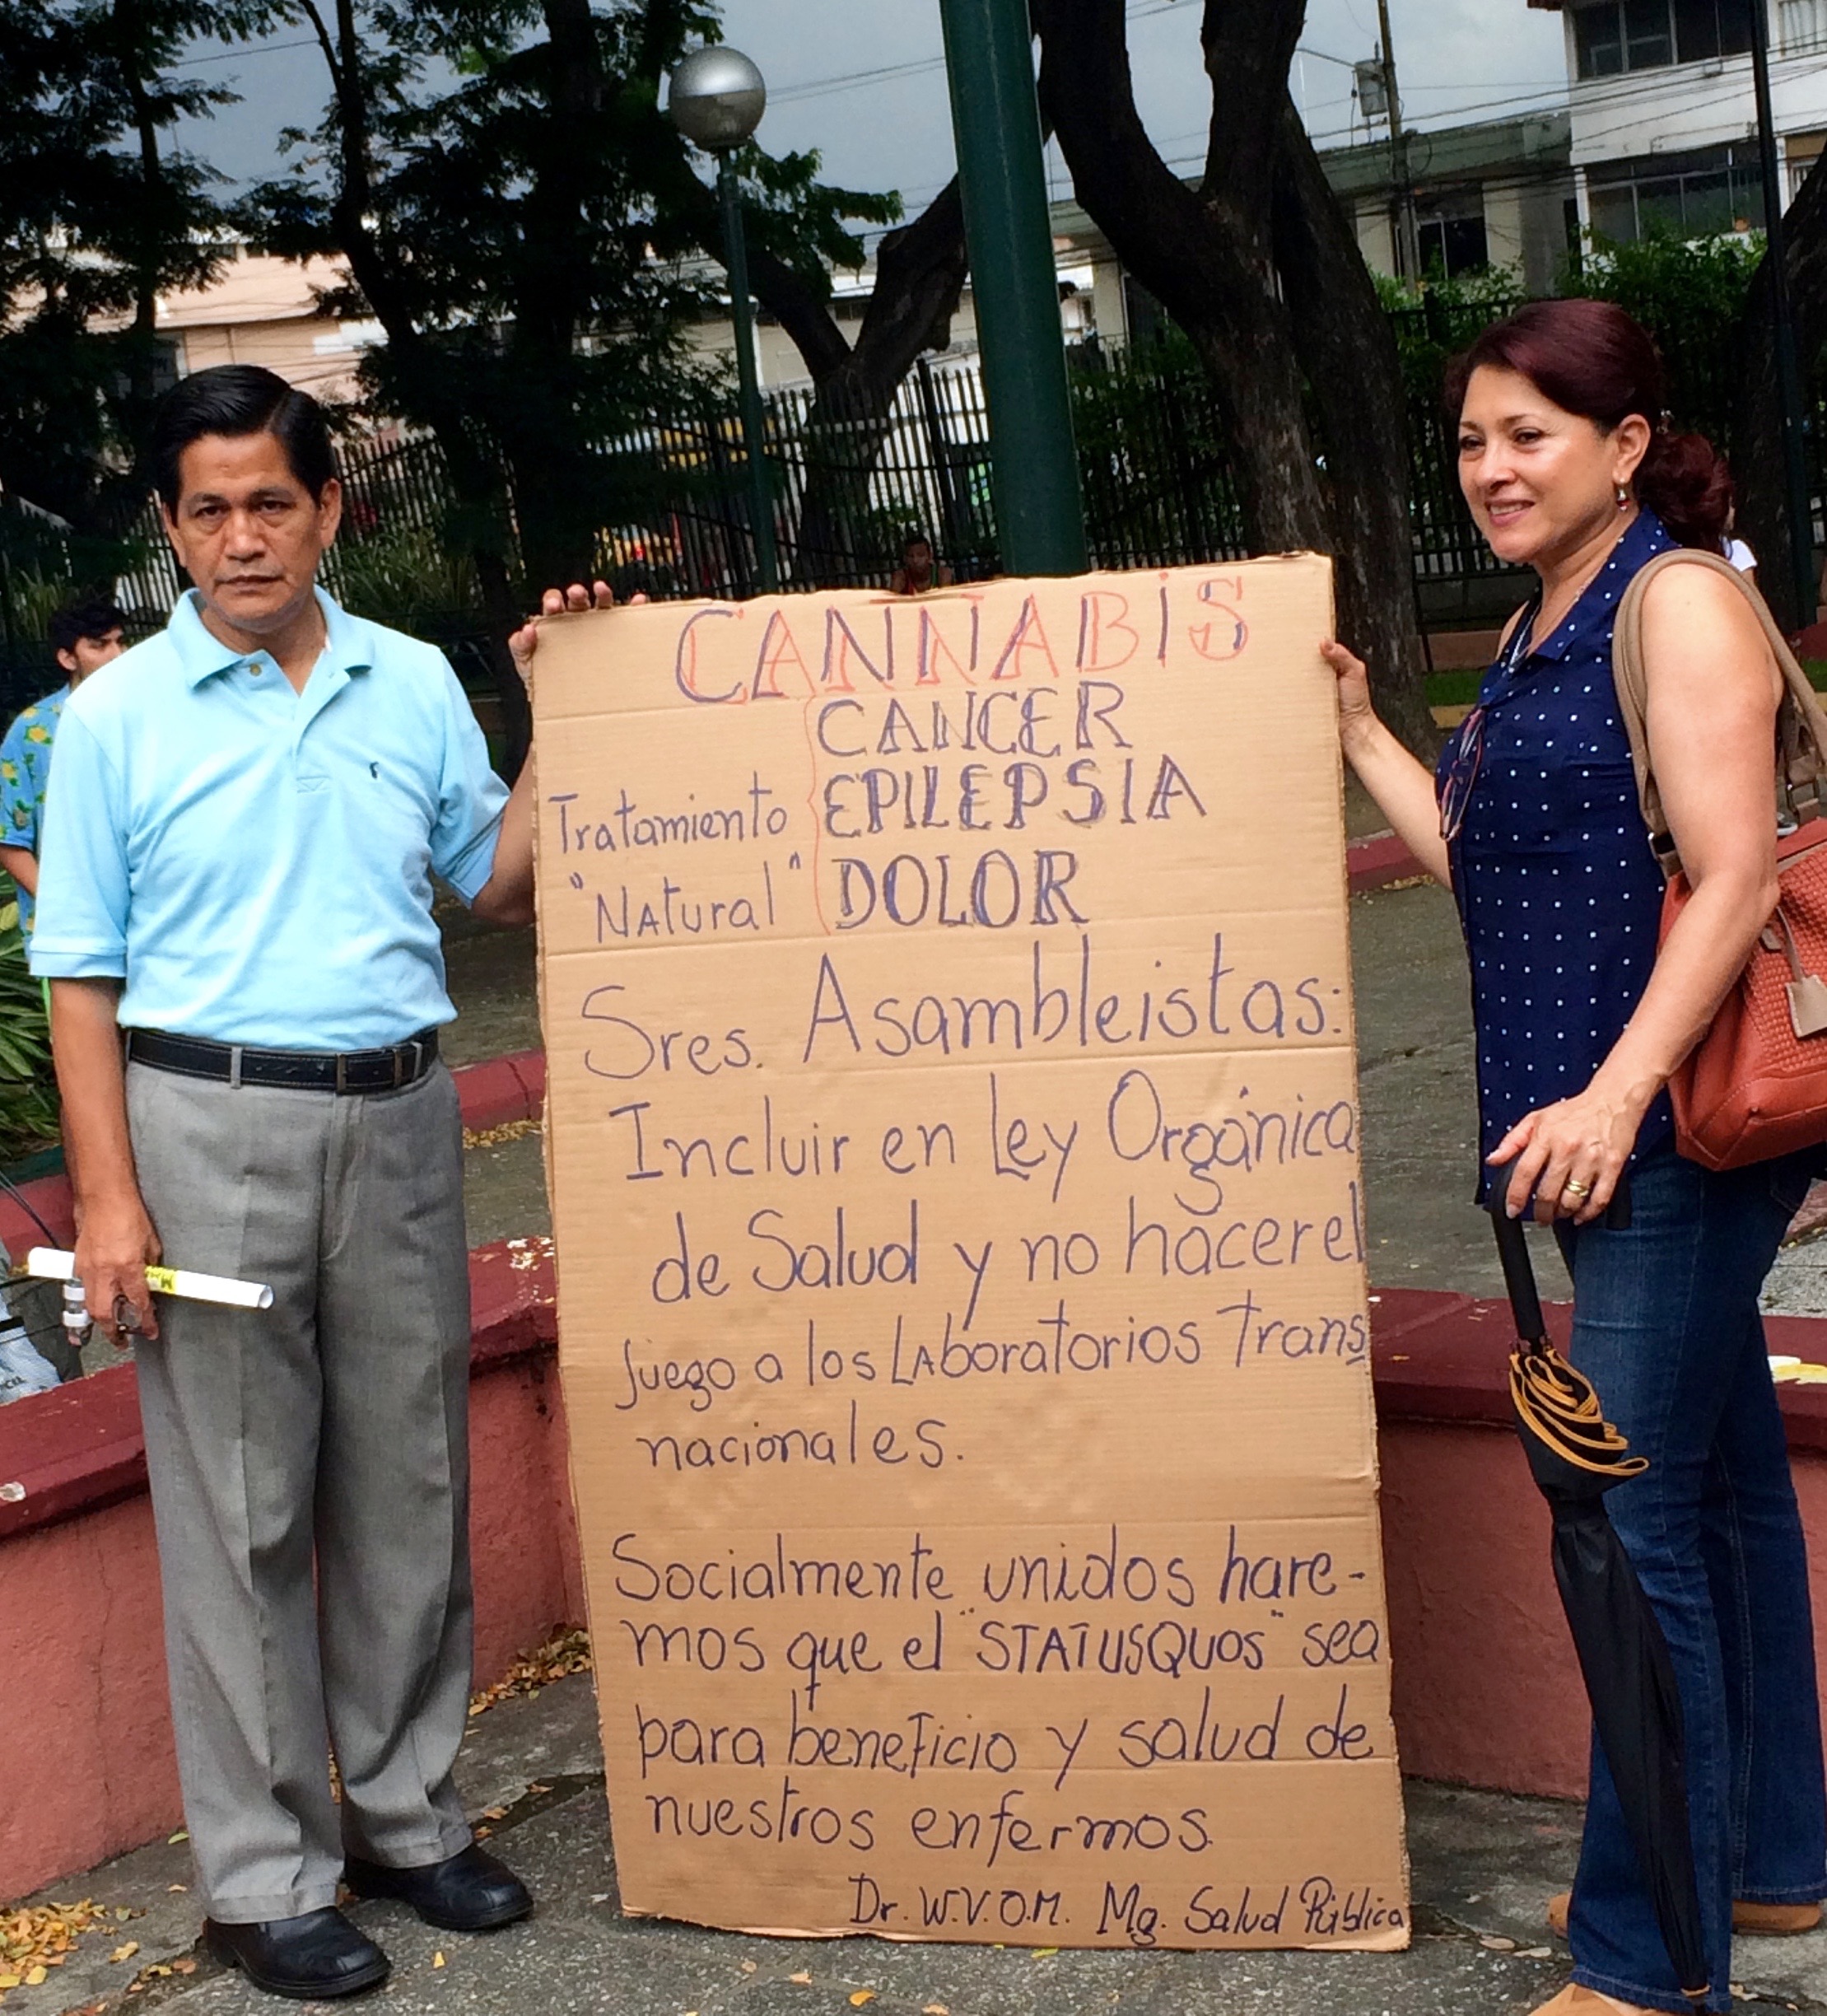 CANNABIS
CANCER
Tratamiento EPILEPSIA
"NAtural" DOLOR
Sres. Asambleistas:
Incluir en Ley Orgánica
de Salud y no hacer el
juego a los LAboratorios Trans
nacionales.
Socialmente unidos hare-
mos que el "STATUSQUOS" sea
para beneficio y salud de
nuestros enfermos.
Dr. W.V.O.M. Mg. Salud Pública